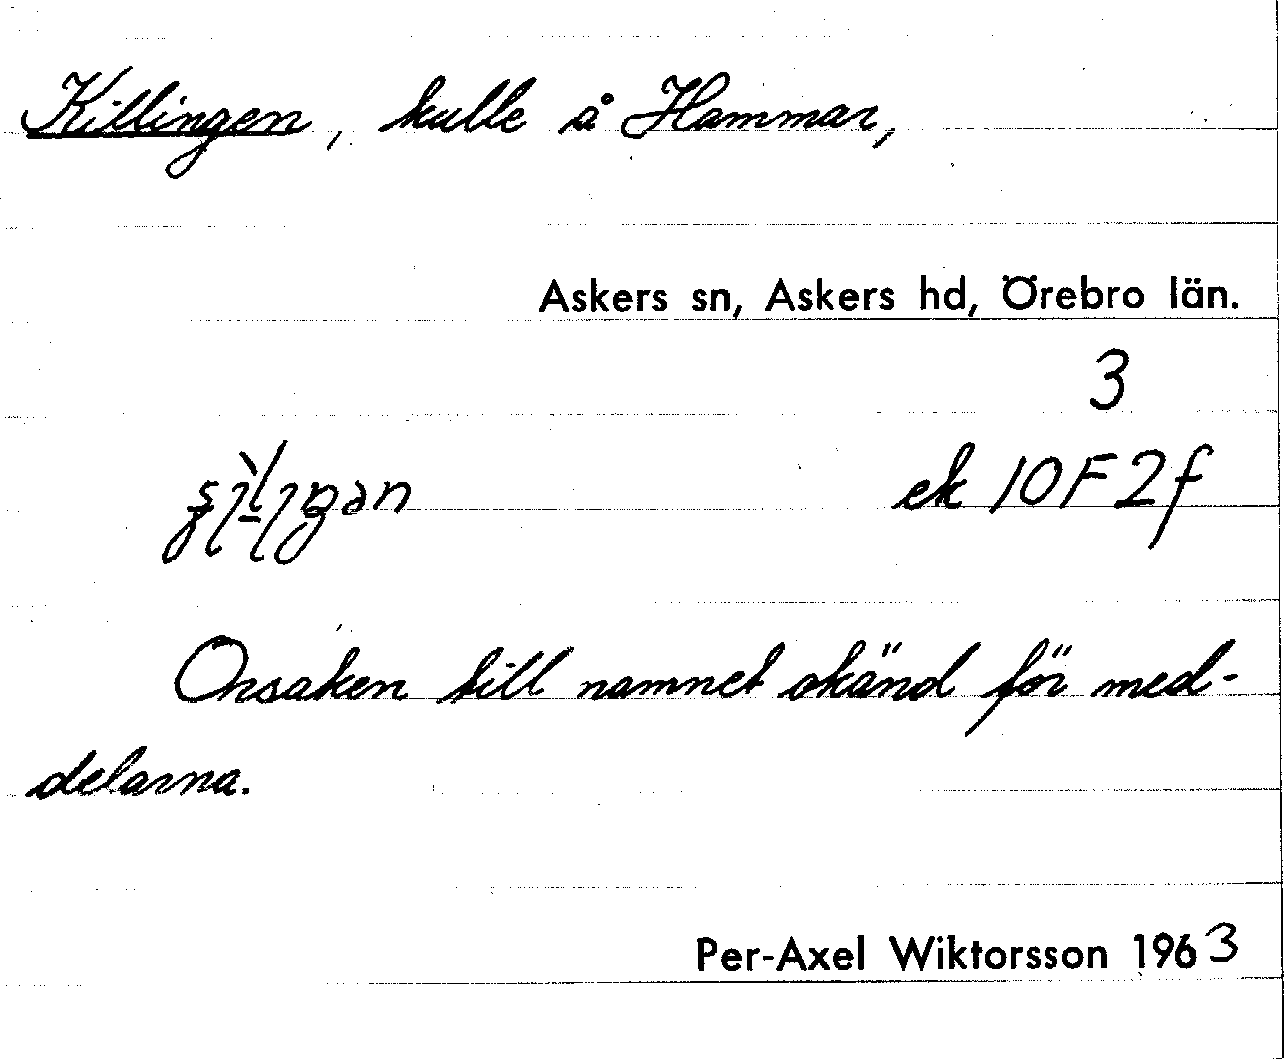 Killingen, kulle å Hammar,
Askers sn, Askers hd, Örebro län.
3
ek 10F2f
Orsaken till namnet okänd för med-
delarna.
Per-Axel Wiktorsson 1963